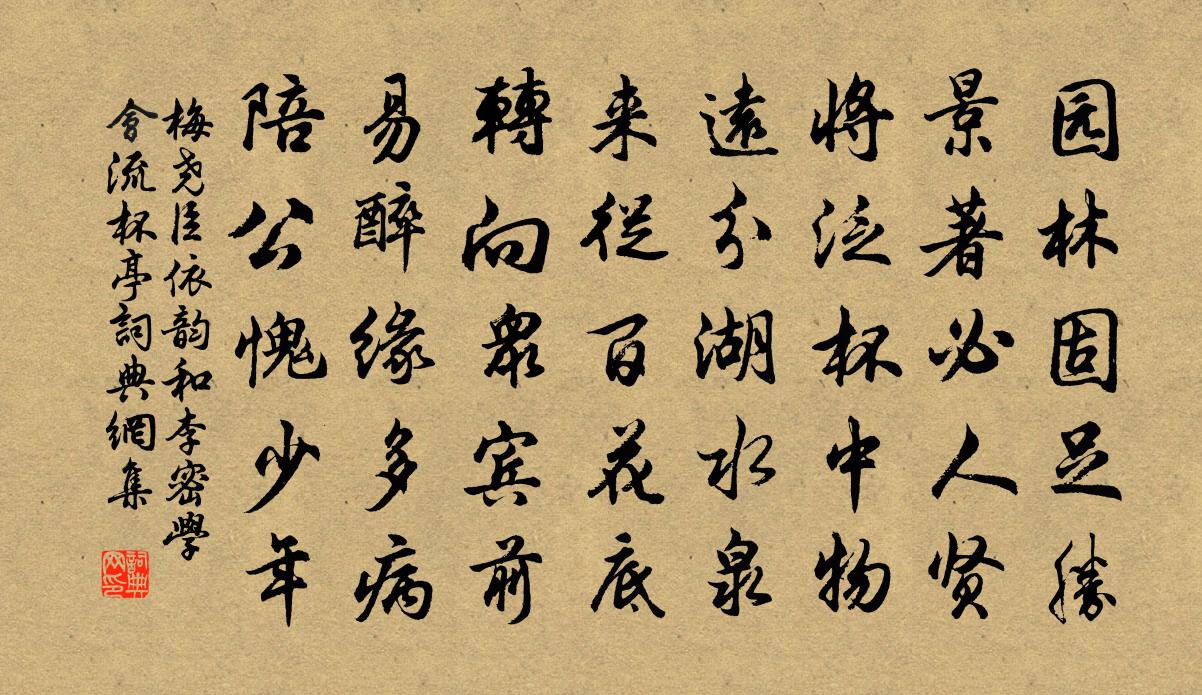 园林固足勝
景著必人贤
将泛杯中物
遠分湖水泉
来従百花底
轉向眾宾前
易醉缘多病
陪公愧少年
梅尧臣依韵和李密學
會流杯亭詞典網集
詞典网印